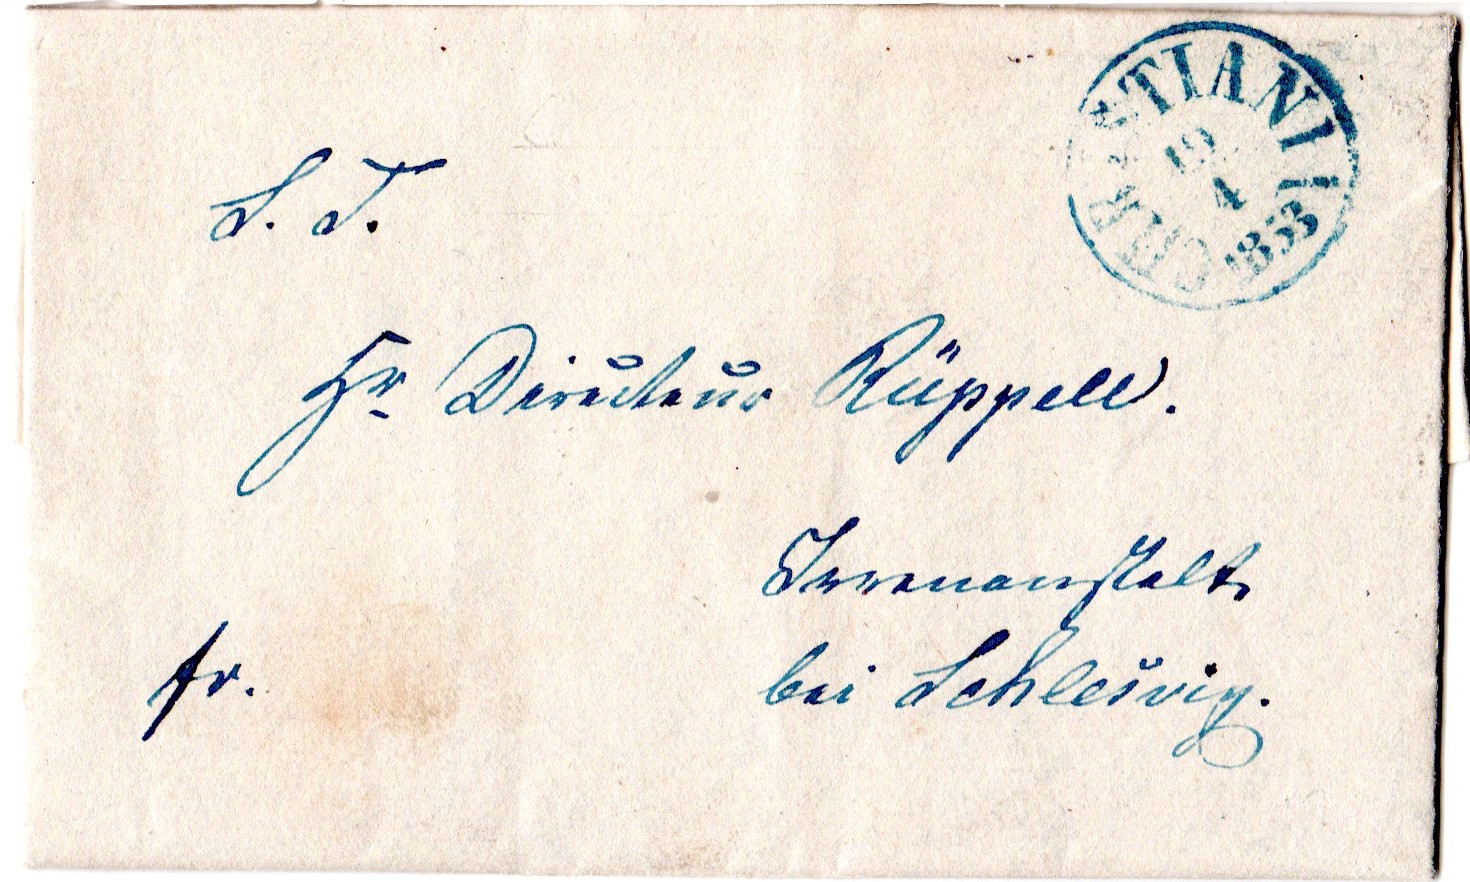 S. T.
Hr Directeur Rüppell.
Irrenanstalt
bei Schlesvig.
fr.
CHRISTIANIA
19
4
1853